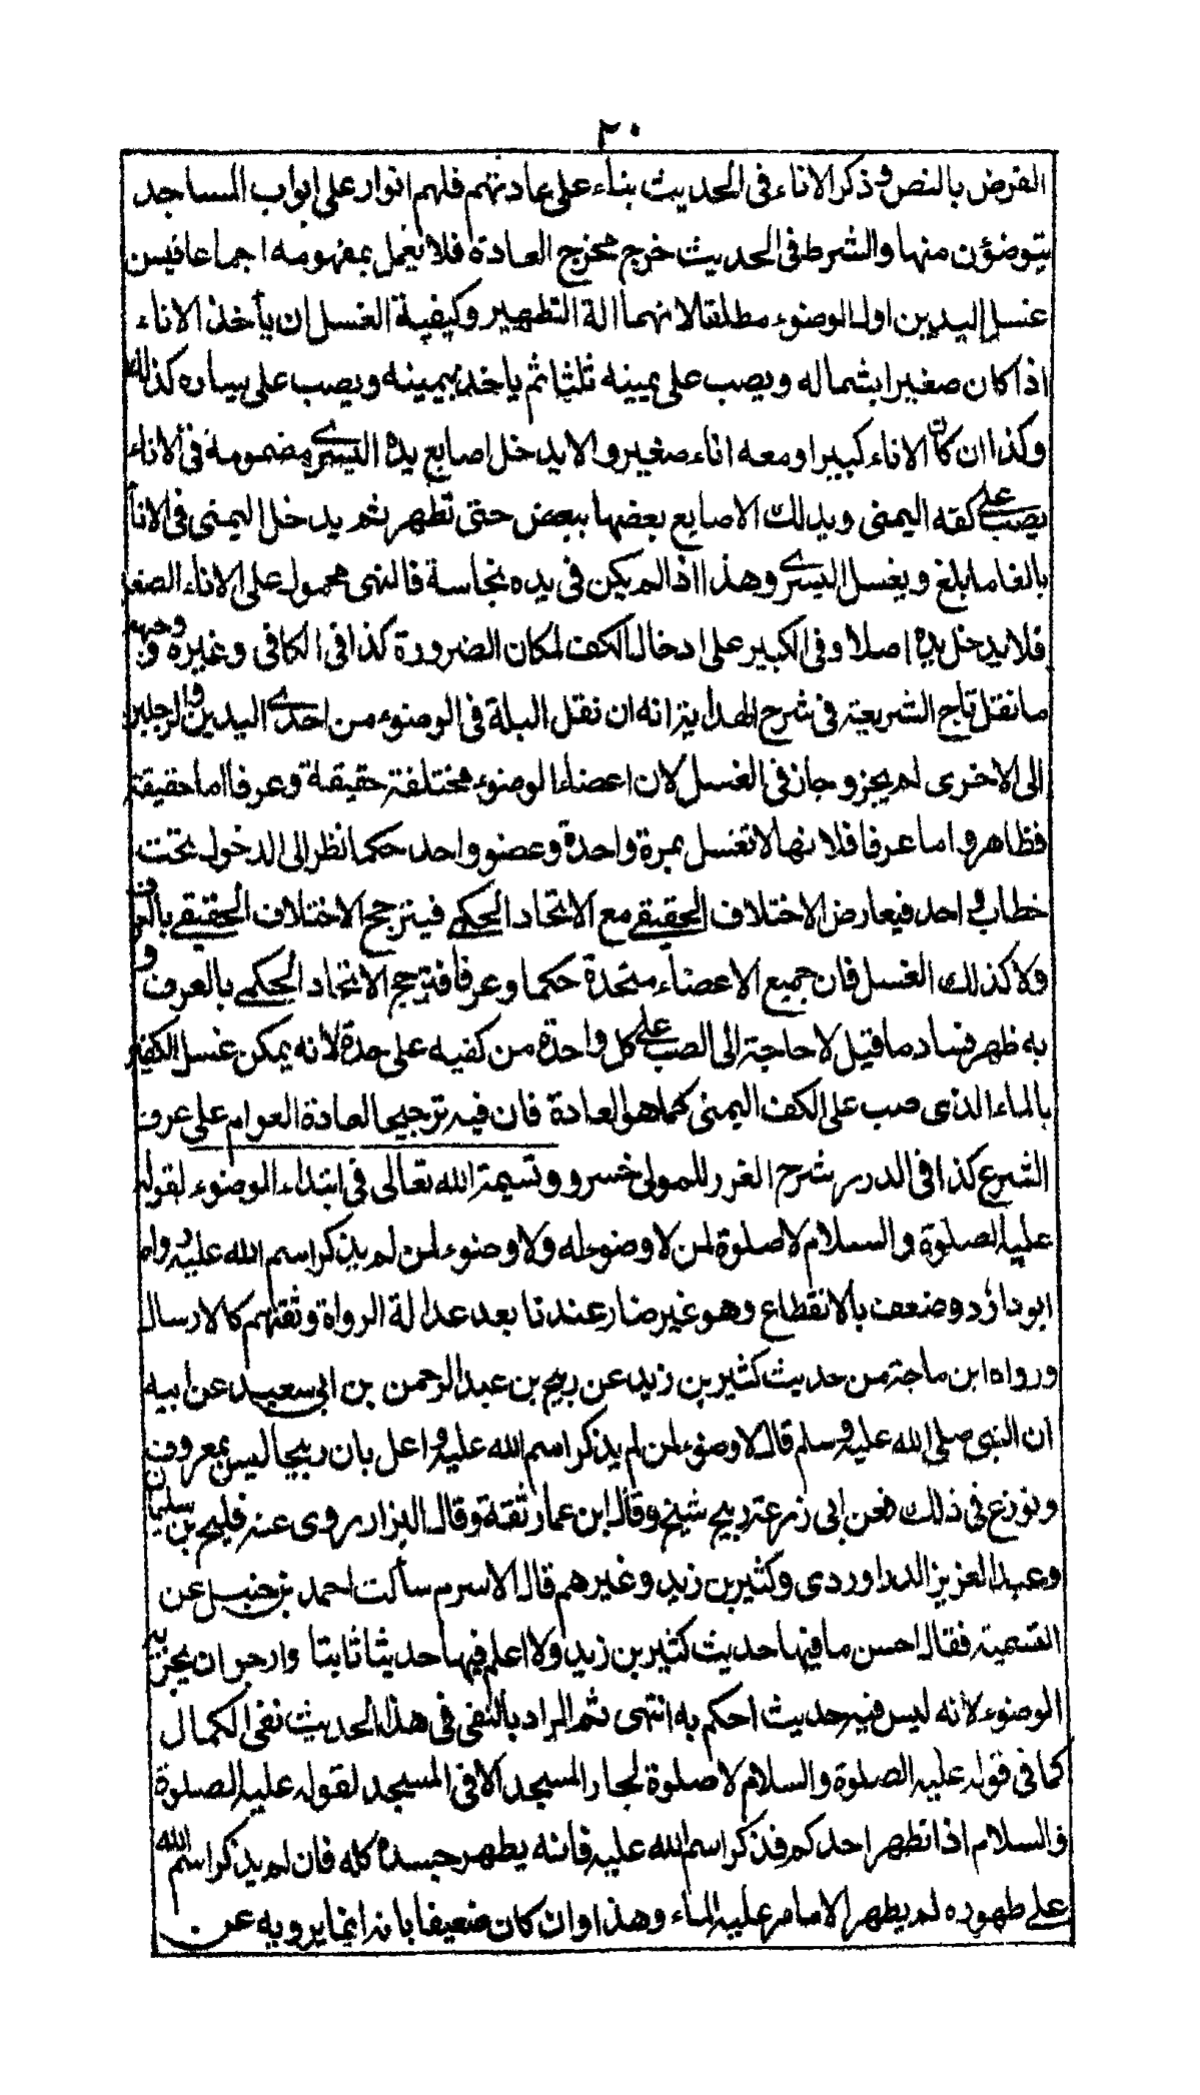 ٢٠
الفرض بالنص وذكر الاناء فى الحديث بناء على عادتهم فلهم انوار على ابواب المساجد
يتوضؤن منها والشرط فى الحديث خرج مخرج العادة فلا يعمل بمفهومه اجماعا فيسن
غسل اليدين اول الوضوء مطلقا لانهما الة التطهير وكيفية الغسل ان يأخذ الاناء
اذا كان صغيرا بشماله ويصب على يمينه ثلثا ثم ياخذ بيمينه ويصب على يساره كذلك
وكذا ان كان الاناء كبيرا ومعه اناء صغير والا يدخل اصابع يده اليسرى مضمومة فى الاناء
يصب على كفه اليمنى ويدلك الاصابع بعضها ببعض حتى تطهر ثم يدخل اليمنى فى الاناء
بالغا ما بلغ ويغسل اليسرى وهذا اذا لم يكن فى يده نجاسة فالنهى محمول على الاناء الصغير
فلا يدخل يده اصلا وفى الكبير على ادخال الكف لمكان الضرورة كذا فى الكافى وغيره ووجهه
ما نقل تاج الشريعة فى شرح الهداية انه ان نقل البلة فى الوضوء من احدى اليدين والرجلين
الى الاخرى لم يجز وجاز فى الغسل لان اعضاء الوضوء مختلفة حقيقة وعرفا اما حقيقة
فظاهر واما عرفا فلانها لا تغسل بمرة واحدة وعضو واحد حكما نظرا الى الدخول تحت
خطاب واحد فيعارض الاختلاف الحقيقى مع الاتحاد الحكمى فيترجح الاختلاف الحقيقى بالعرف
ولا كذلك الغسل فان جميع الاعضاء متحدة حكما وعرفا فترجح الاتحاد الحكمى بالعرف و
به ظهر فساد ما قيل لا حاجة الى الصب على كل واحدة من كفيه على حدة لانه يمكن غسل الكفين
بالماء الذى صب على الكف اليمنى كما هو العادة فان فيه ترجيحا لعادة العوام على عرف
الشرع كذا فى الدرر شرح الغرر للمولى خسرو وتسمية الله تعالى فى ابتداء الوضوء لقوله
عليه الصلوة والسلام لا صلوة لمن لا وضوء له ولا وضوء لمن لم يذكر اسم الله عليه رواه
ابوداؤد وضعف بالانقطاع وهو غير ضار عندنا بعد عدالة الرواة وثقتهم كالارسال
ورواه ابن ماجة من حديث كثير بن زيد عن ربيح بن عبد الرحمن بن ابى سعيد عن ابيه
ان النبى صلى الله عليه وسلم قال لا وضوء لمن لم يذكر اسم الله عليه واعل بان ربيحا ليس بمعروف
ونوزع فى ذلك فعن ابى زرعة ربيح شيخ وقال ابن عمار ثقة وقال البزار روى عنه فليح بن سليمان
وعبد العزيز الدراوردى وكثير بن زيد وغيرهم قال الاسرم سألت احمد بن حنبل عن
التسمية فقال احسن ما فيها حديث كثير بن زيد ولا اعلم فيها حديثا ثابتا وارجو ان يجزيه
الوضوء لانه ليس فيه حديث احكم به انتهى ثم المراد بالنفى فى هذا الحديث نفى الكمال
كما فى قوله عليه الصلوة والسلام لا صلوة لجار المسجد الا فى المسجد لقوله عليه الصلوة
والسلام اذا تطهر احدكم فذكر اسم الله عليه فانه يطهر جسده كله فان لم يذكر اسم الله
على طهوره لم يطهر الا ما مر عليه الماء وهذا وان كان ضعيفا بانه انما يرويه عن